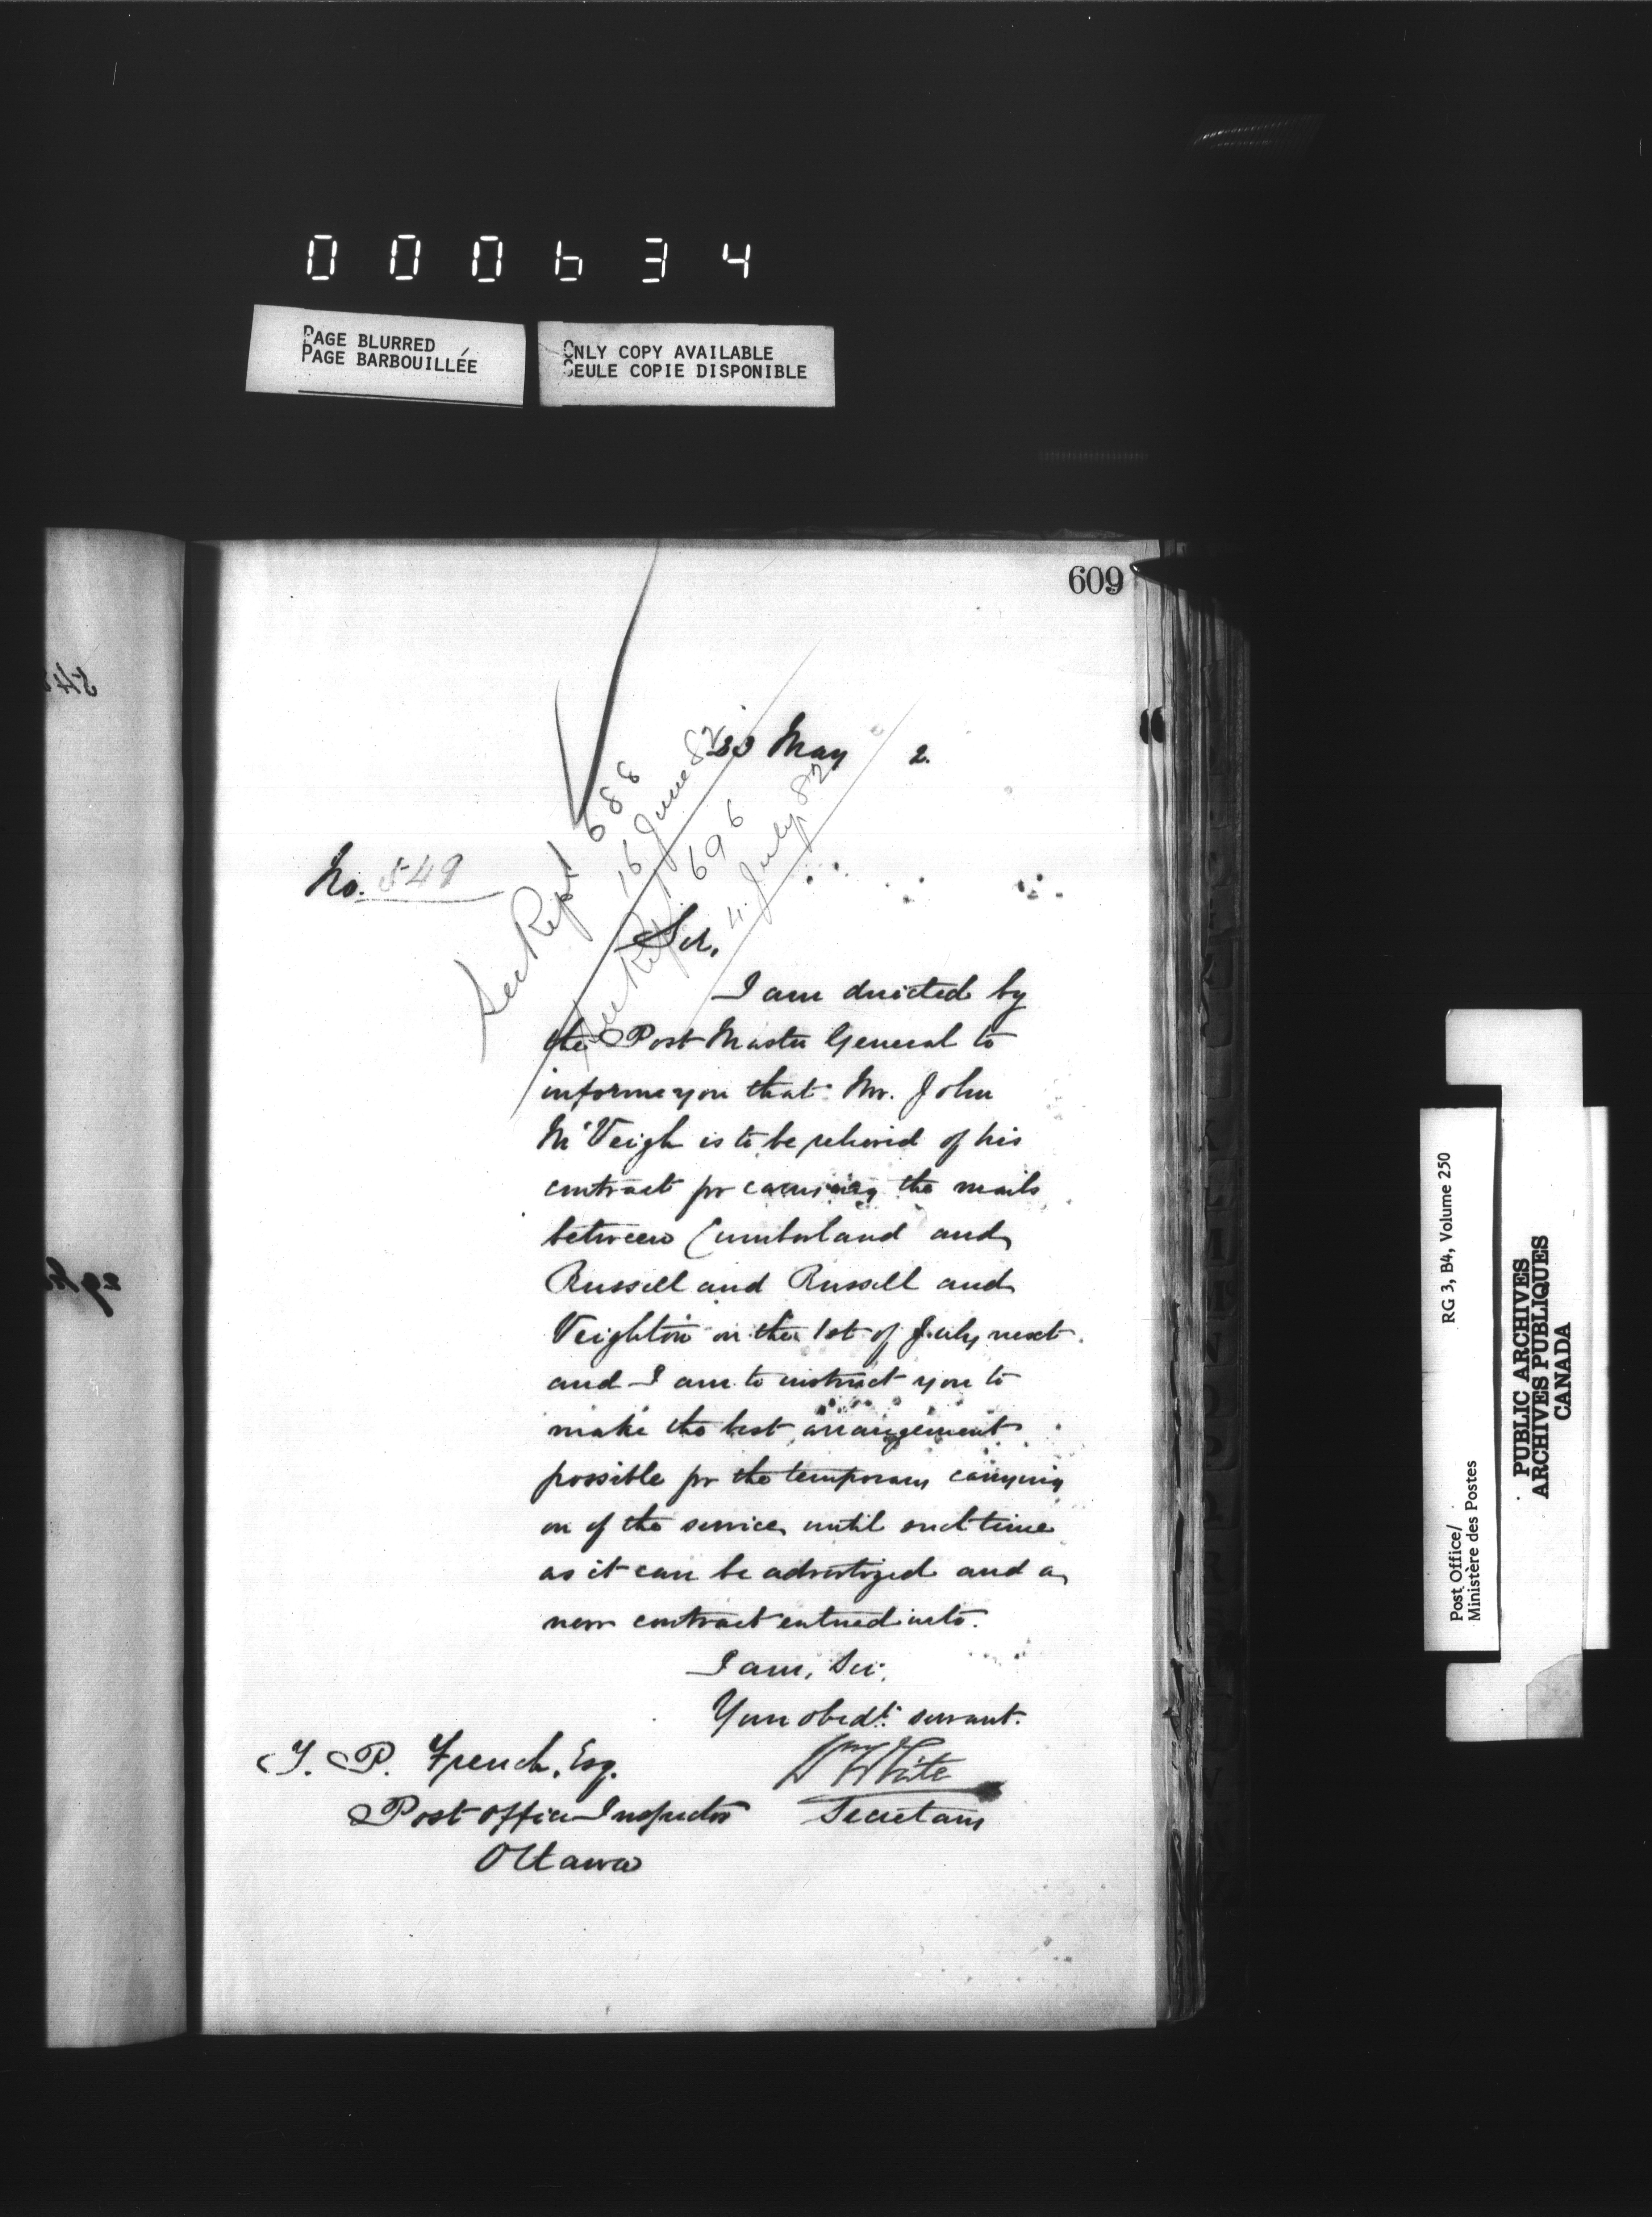 000634
PAGE BLURRED
PAGE BARBOUILLÉE
ONLY COPY AVAILABLE
SEULE COPIE DISPONIBLE
609
May 2.
See Rept 688
16 June 82
See Rept 696
4 July 82
No. 549
Sir,
I am directed by
the Post Master General to
inform you that Mr. John
McVeigh is to be relieved of his
contract for carrying the mails
between Cumberland and
Russell and Russell and
Veighton on the 1st of July next
and I am to instruct you to
make the best arrangement
possible for the temporary carrying
on of the service until such time
as it can be advertized and a
new contract entered into.
I am, Sir,
Your obedt. servant.
Wm White
Secretary
T. P. French, Esq.
Post Office Inspector
Ottawa
RG 3, B4, Volume 250
Post Office/
Ministère des Postes
PUBLIC ARCHIVES
ARCHIVES PUBLIQUES
CANADA